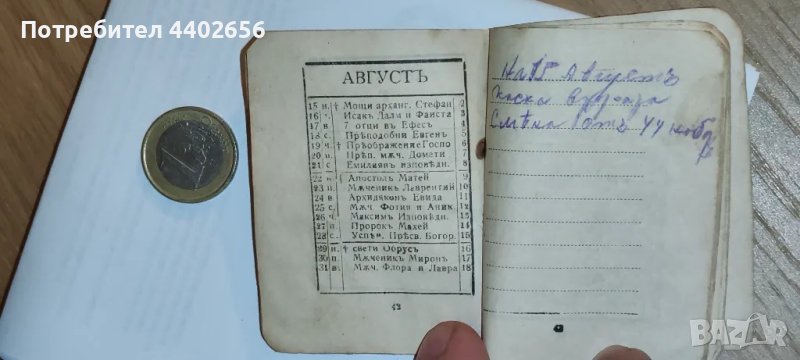 Потребител 4402656
АВГУСТЪ
15 н. † Мощи арханг. Стефан 2
16 ч. Исак Далм и Фавста 3
17 в 7 отци въ Ефесъ 4
18 с. Прѣподобни Евген 5
19 ч. † Прѣображение Госпо 6
20 п. Прѣп. мѫч. Домети 7
21 с Емилиянъ изповѣдн. 8
22 н. Апостолъ Матей 9
23 п. Мѫченикъ Лаврентий 10
24 в Архидяконъ Евпла 11
25 с. Мѫч Фотия и Аник. 12
26 ч. Максимъ Изповѣдн. 13
27 п Пророкъ Михей 14
28 с. Успѣн. Прѣсв. Богор. 15
29 н. † свети Обрусъ 16
30 п. Мѫченикъ Миронъ 17
31 в. Мѫч. Флора и Лавра 18
43
На 15 Августъ
Смѣна отъ 44
BAZAR